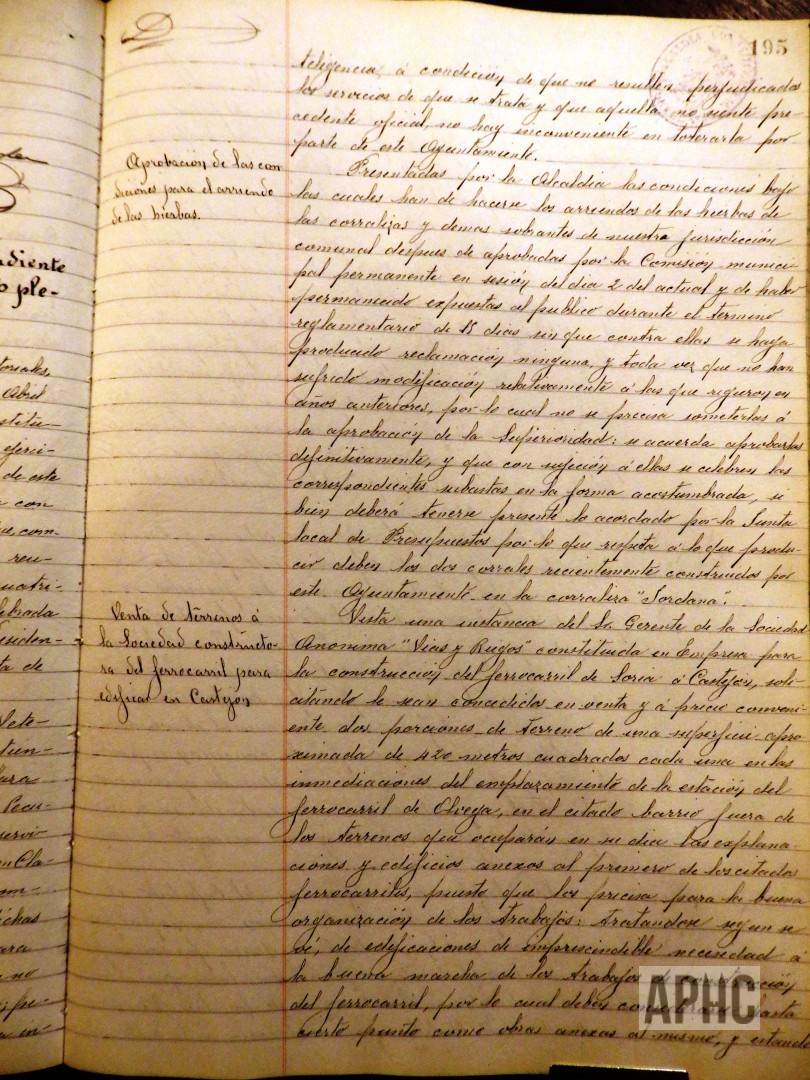 195
teligencia, á condición de que no resulten perjudicados
los servicios de que se trata y que aquella no siente pre-
cedente oficial, no hay inconveniente en tolerarla por
parte de este Ayuntamiento.
Aprobación de las con
diciones para el arriendo
de las hierbas.
Presentadas por la Alcaldia las condiciones bajo
las cuales han de hacerse los arriendos de las hierbas de
las corralizas y demas sobrantes de nuestra jurisdicción
comunal despues de aprobadas por la Comisión munici
pal permanente en sesión del dia 2 del actual y de haber
permanecido expuestas al publico durante el termino
reglamentario de 15 dias sin que contra ellas se haya
producido reclamación ninguna, y toda vez que no han
sufrido modificación relativamente á las que rigieron en
años anteriores, por lo cual no se precisa someterlas á
la aprobación de la Superioridad: se acuerda aprobarlas
definitivamente, y que con sujeción á ellas se celebren las
correspondientes subastas en la forma acostumbrada, si
bien deberá tenerse presente lo acordado por la Junta
local de Presupuestos por lo que respecta á lo que produ-
cir deben los dos corrales recientemente construidos por
este Ayuntamiento en la corraliza "Jordana".
Venta de terrenos á
la Sociedad constructo-
ra del ferrocarril para
edificar en Castejón
Vista una instancia del Sr. Gerente de la Sociedad
Anonima "Vias y Riegos" constituida en Empresa para
la construccion del ferrocarril de Soria á Castejon, soli-
citándo le sean concedidos en venta y á precio conveni-
ente dos porciones de terreno de una superficie apro
ximada de 420 metros cuadrados cada una en las
inmediaciones del emplazamiento de la estación del
ferrocarril de Olvega, en el citado barrio fuera de
los terrenos que ocuparán en su dia las explana-
ciones y edificios anexos al primero de los citados
ferrocarriles, puesto que los precisa para la buena
organización de los trabajos: tratandose segun se
vé, de edificaciones de imprescindible necesidad á
la buena marcha de los trabajos de
del ferrocarril, por lo cual deben considerarse hasta
cierto punto como obras anexas al mismo, y estando
APHC